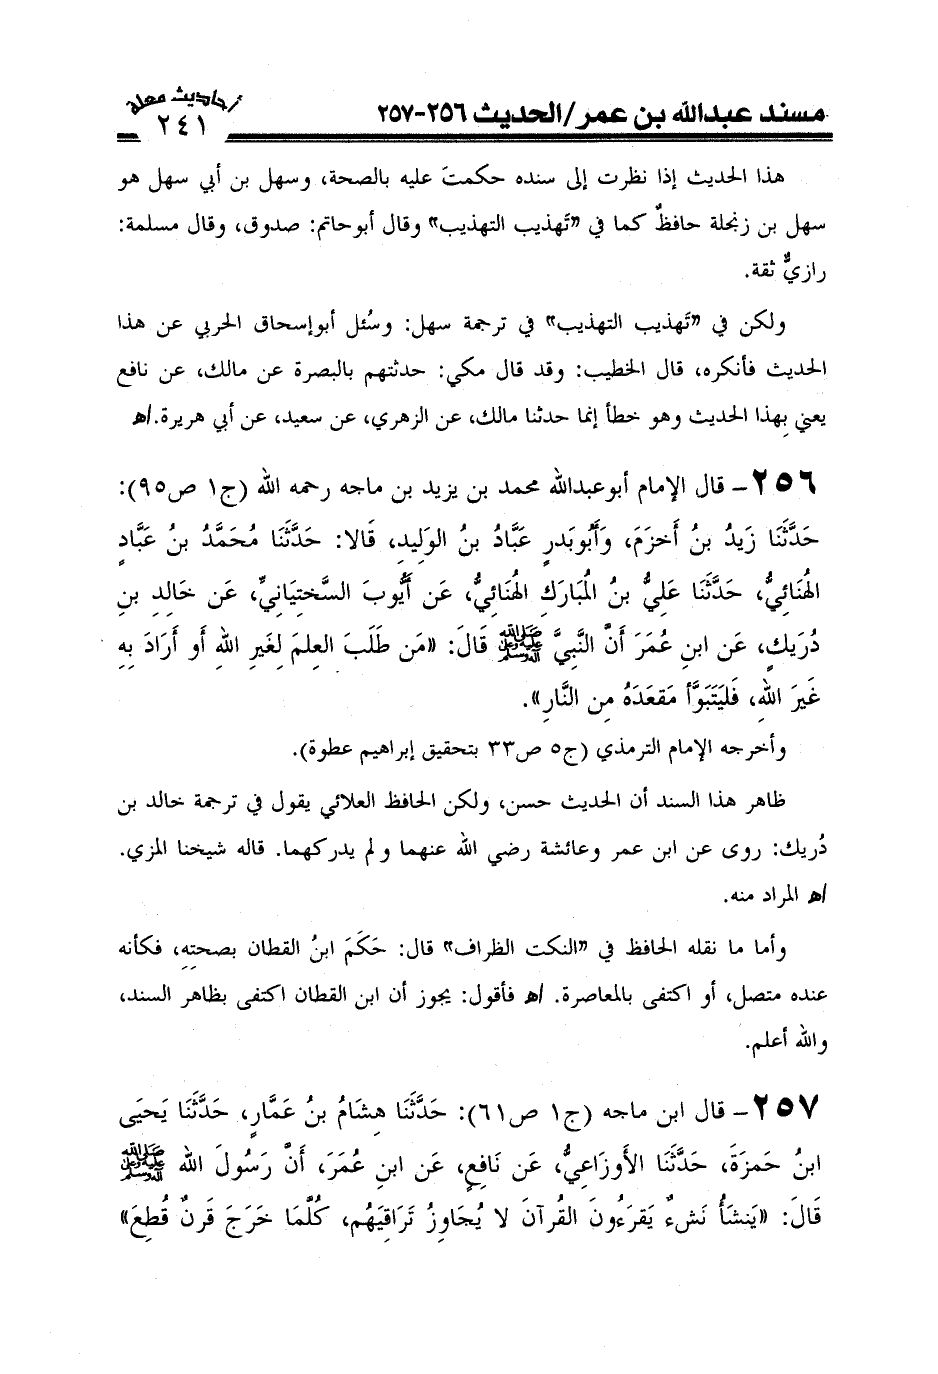 أحاديث معلة
٢٤١
مسند عبدالله بن عمر/الحديث ٢٥٦-٢٥٧
هذا الحديث إذا نظرت إلى سنده حكمتَ عليه بالصحة، وسهل بن أبي سهل هو
سهل بن زنجلة حافظٌ كما في «تَهذيب التهذيب» وقال أبوحاتم: صدوق، وقال مسلمة:
رازيٌّ ثقة.
ولكن في «تَهذيب التهذيب» في ترجمة سهل: وسُئل أبوإسحاق الحربي عن هذا
الحديث فأنكره، قال الخطيب: وقد قال مكي: حدثتهم بالبصرة عن مالك، عن نافع
يعني بِهذا الحديث وهو خطأ إنما حدثنا مالك، عن الزهري، عن سعيد، عن أبي هريرة.اﻫ
٢٥٦- قال الإمام أبوعبدالله محمد بن يزيد بن ماجه رحمه الله (ج١ ص٩٥):
حَدَّثَنَا زَيدُ بنُ أَخزَمَ، وَأَبُوبَدرٍ عَبَّادُ بنُ الوَلِيدِ، قَالا: حَدَّثَنَا مُحَمَّدُ بنُ عَبَّادٍ
الهُنَائِيُّ، حَدَّثَنَا عَلِيُّ بنُ المُبَارَكِ الهُنَائِيُّ، عَن أَيُّوبَ السَّختِيَانِيِّ، عَن خَالِدِ بنِ
دُرَيكٍ، عَن ابنِ عُمَرَ أَنَّ النَّبِيَّ ﷺ قَالَ: «مَن طَلَبَ العِلمَ لِغَيرِ اللهِ أَو أَرَادَ بِهِ
غَيرَ اللهِ، فَليَتَبَوَّأ مَقعَدَهُ مِن النَّارِ».
وأخرجه الإمام الترمذي (ج٥ ص٣٣ بتحقيق إبراهيم عطوة).
ظاهر هذا السند أن الحديث حسن، ولكن الحافظ العلائي يقول في ترجمة خالد بن
دُريك: روى عن ابن عمر وعائشة رضي الله عنهما ولم يدركهما. قاله شيخنا المزي.
اﻫ المراد منه.
وأما ما نقله الحافظ في «النكت الظراف» قال: حَكَمَ ابنُ القطان بصحتِهِ، فكأنه
عنده متصل، أو اكتفى بالمعاصرة. اﻫ فأقول: يجوز أن ابن القطان اكتفى بظاهر السند،
والله أعلم.
٢٥٧- قال ابن ماجه (ج١ ص٦١): حَدَّثَنَا هِشَامُ بنُ عَمَّارٍ، حَدَّثَنَا يَحيَى
ابنُ حَمزَةَ، حَدَّثَنَا الأَوزَاعِيُّ، عَن نَافِعٍ، عَن ابنِ عُمَرَ، أَنَّ رَسُولَ اللهِ ﷺ
قَالَ: «يَنشَأُ نَشءٌ يَقرَءُونَ القُرآنَ لا يُجَاوِزُ تَرَاقِيَهُم، كُلَّمَا خَرَجَ قَرنٌ قُطِعَ»